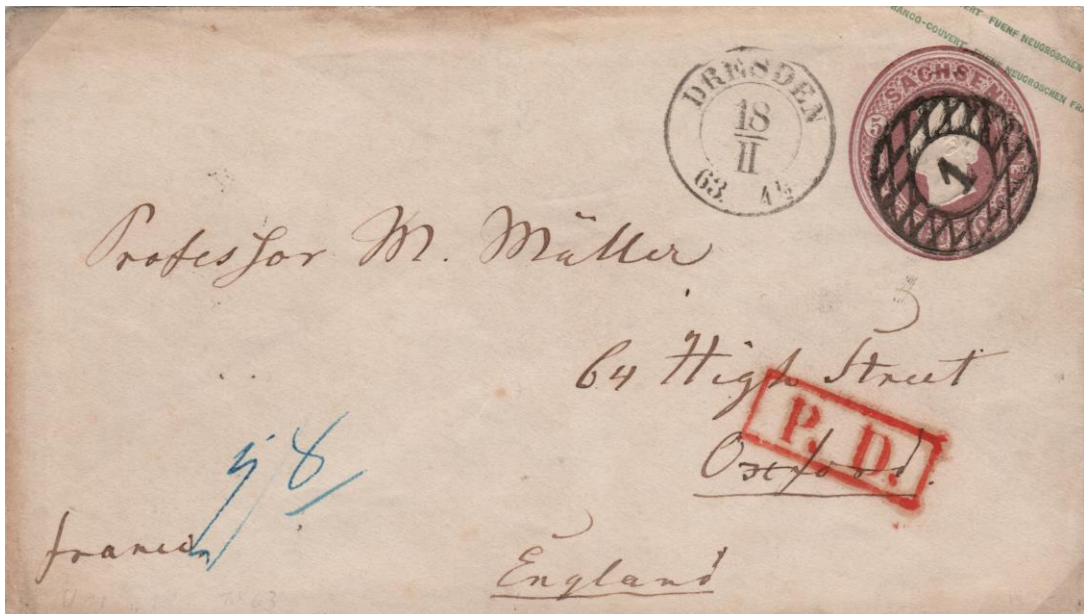 FRANCO-COUVERT FUENF NEUGROSCHEN
FUENF NEUGROSCHEN
DRESDEN
18
II
63.
SACHSEN
5
1
Professor M. Müller
64 High Street
P. D.
Oxford.
England
franco
8